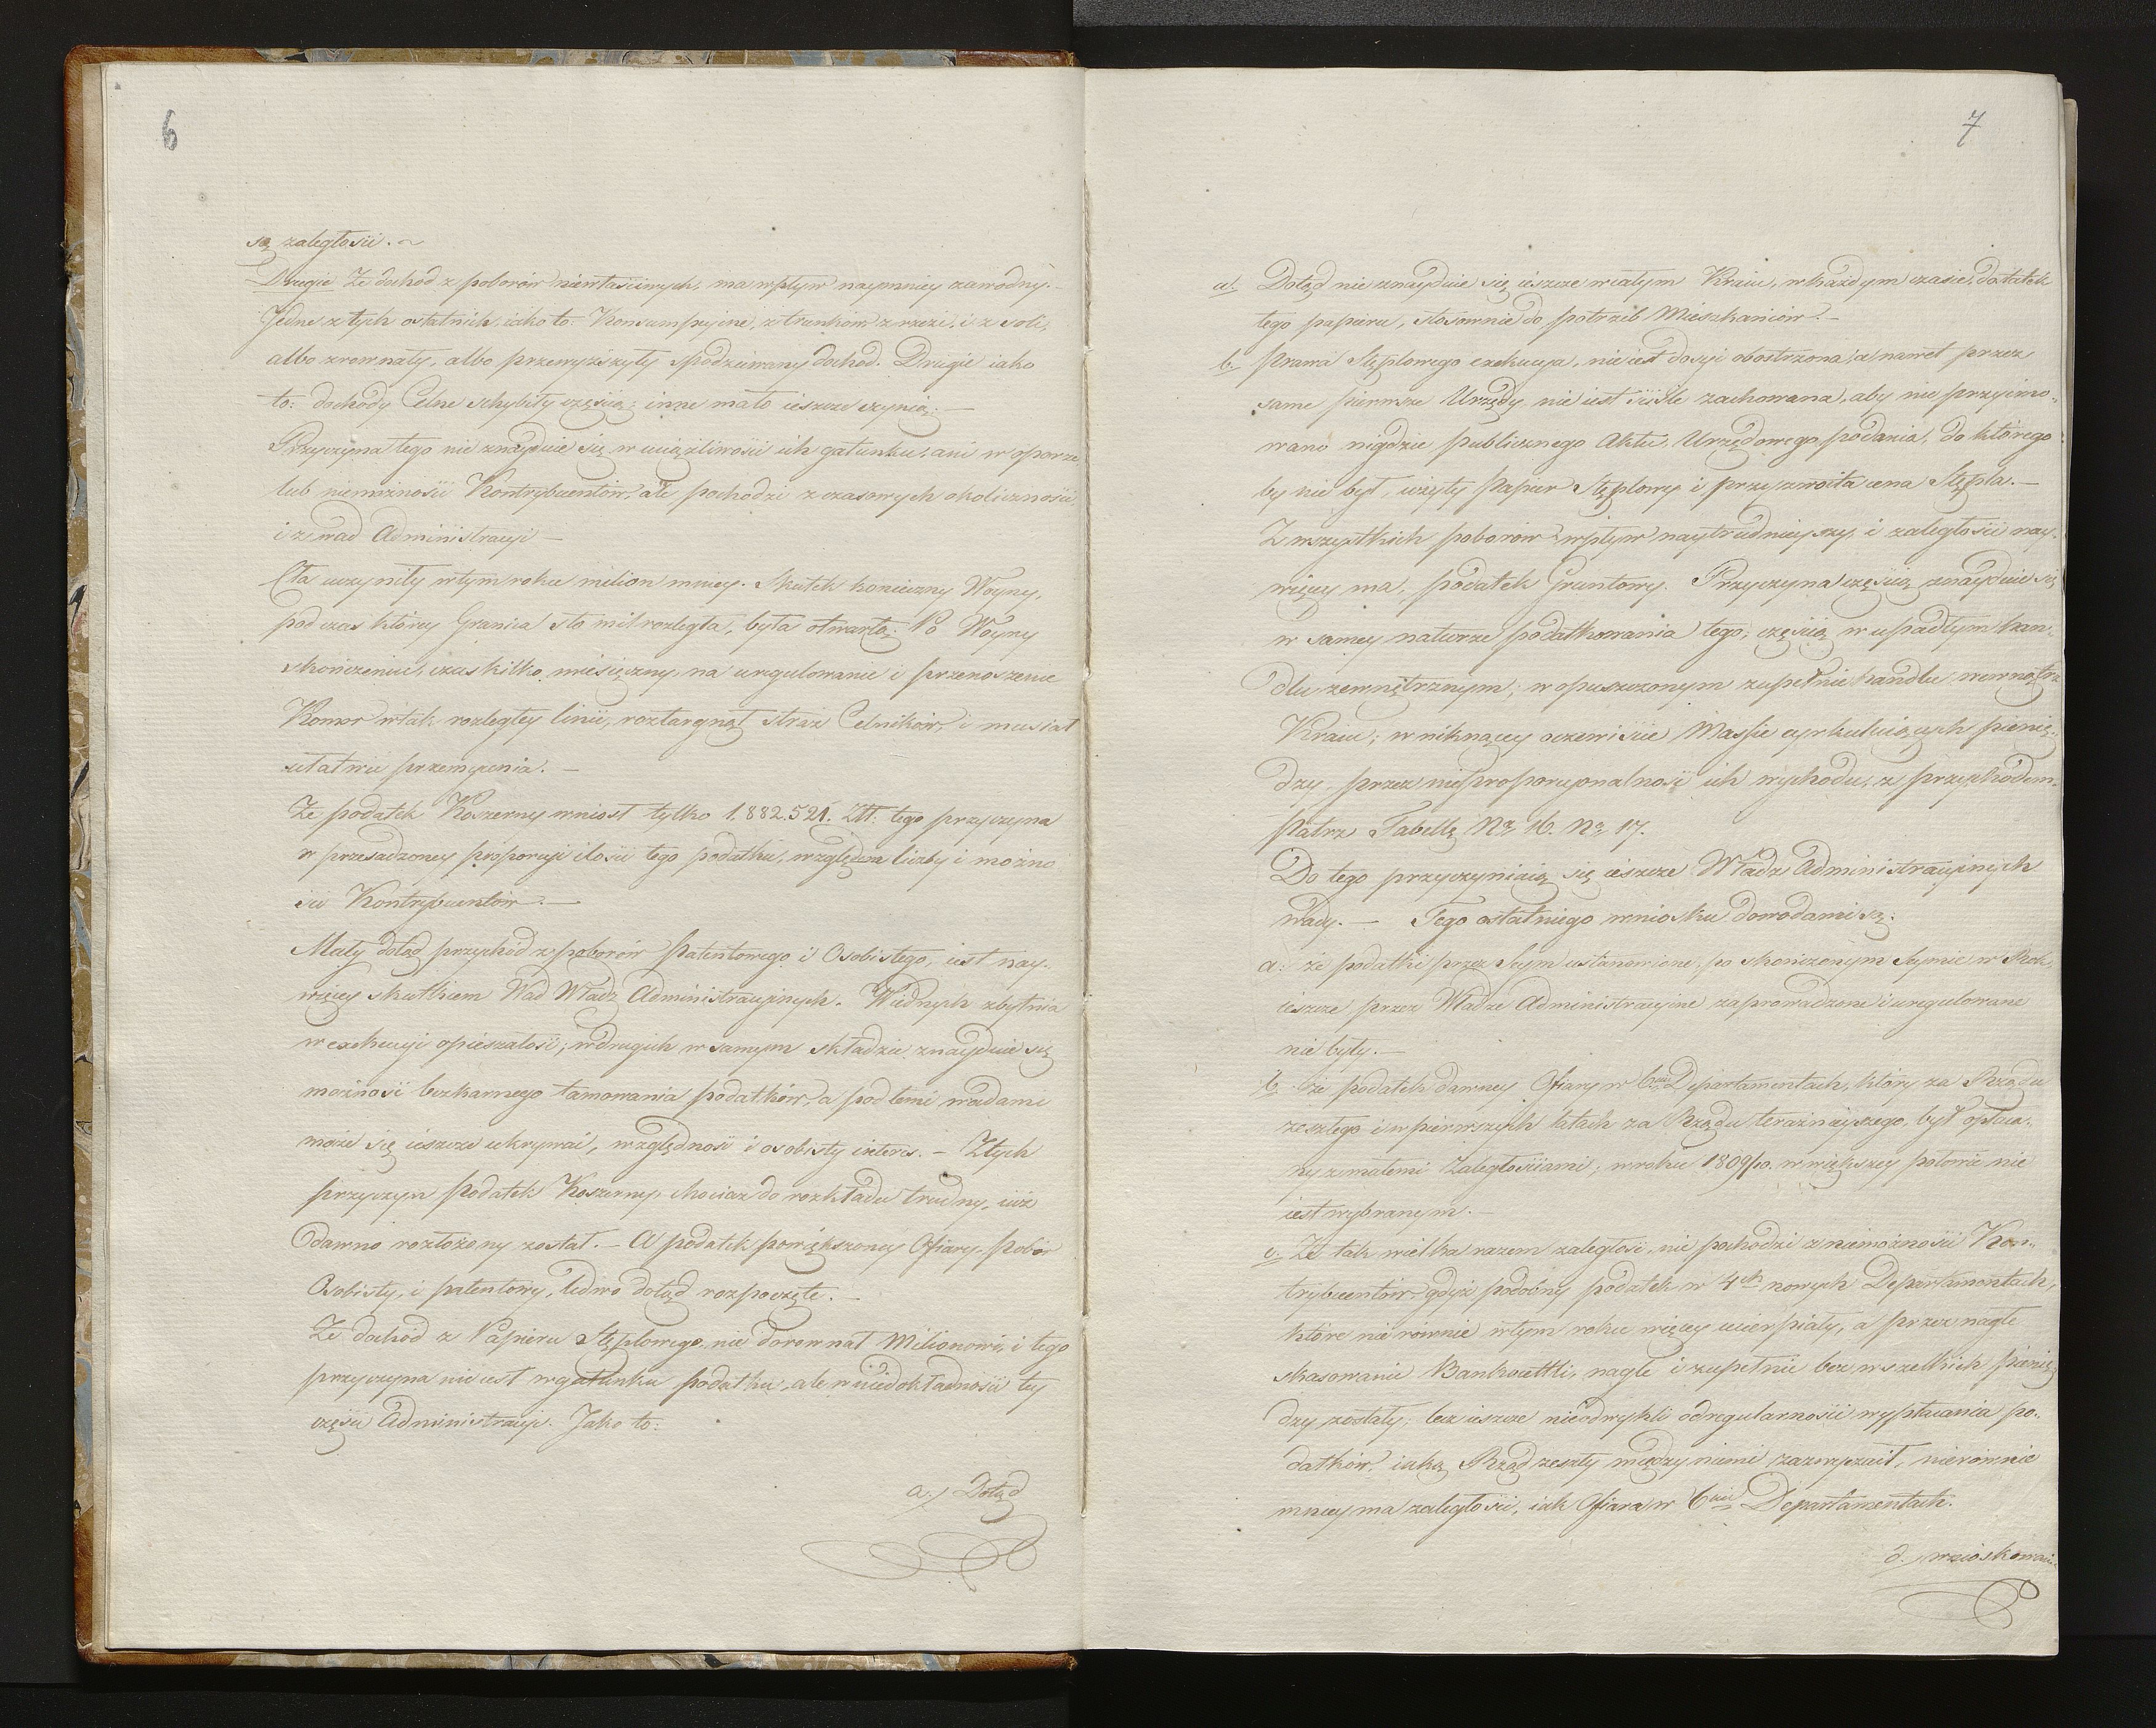 6
są zaległości. ~
Drugie Że dochód z poborów niewłaściwych, ma wpływ naymniey zawodny. –
Jedne z tych ostatnich, iako to: Konsumpcyine, z trunków z rzezi, i z soli,
albo zrownały, albo przewyższyły spodziewany dochod. Drugie iako
to: dochody Celne schybiły częścią; inne mało ieszcze czynią: –
Przyczyna tego nie znayduie się w uciążliwości ich gatunku, ani w oporze
lub niemożności Kontrybuentów, ale pochodzi z czasowych okoliczności,
i z wad Administracyi –
Cła uczyniły w tym roku milion mniey. Skutek konieczny Woyny,
podczas którey Granica sto mil rozległa, była otwartą; Po Woyny
skończeniu, czas kilko miesięczny, na uregulowanie i przenoszenie
Komor w tak rozległey linii, roztargnął straż Celników, i musiał
ułatwić przemycenia. –
Że podatek Koszerny wniosł tylko 1.882.521. Złł: tego przyczyna
w przesadzoney proporcyi ilości tego podatku, względem liczby i możno
ści Kontrybuentów. –
Mały dotąd przychód z poborów Patentowego i Osobistego, iest nay-
więcey skutkiem Wad Władz Administracyinych. W iednych zbytnia
w exekucyi opieszałość; w drugich w samym składzie, znayduie się
możność bezkarnego tamowania podatków, a pod temi wadami
może się ieszcze ukrywać, względność i osobisty interes. – Z tych
przyczyn podatek Koszerny, chociaż do rozkładu trudny, iuż
dawno rozłożony został. – A podatek powiększoney Ofiary, pobór
Osobisty, i patentowy, ledwo dotąd rozpoczęte. –
Że dochód z Papieru Stęplowego nie dorownał Milionowi, i tego
przyczyna nie iest w gatunku podatku, ale w niedokładności tey
części Administracyi. Jako to:
a./ Dotąd
7
a. Dotąd nie znayduie się ieszcze w całym Kraiu, w każdym czasie, dostatek
tego papieru, stosownie do potrzeb Mieszkańców. –
b. Prawa Stęplowego exekucya, nie iest dosyć obostrzona; a nawet przez
same pierwsze Urzędy nie iest ściśle zachowana, aby nie przyimo-
wano nigdzie publicznego Aktu, Urzędowego podania, do którego
by nie był, użyty Papier Stęplowy i przyzwoita cena Stępla. –
Z wszystkich poborów wpływ naytrudnieyszy, i zaległości nay-
więcey ma, podatek Gruntowy. Przyczyna częścią znayduie się
w samey naturze podatkowania tego; częścią w upadłym han-
dlu zewnętrznym; w opuszczonym zupełnie handlu wewnątrz
Kraiu; w niknącey oczewiście Massie cyrkuluiących pienię-
dzy, przez nieproporcyonalność ich wychodu, z przychodem.
Patrz Tabellę Nro 16. Nro 17.
Do tego przyczyniaią się ieszcze Władz Administracyinych
wady. – Tego ostatniego wniosku dowodami są:
a: że podatki przez Seym ustanowione, po skończonym Seymie w Rok,
ieszcze przez Władze Administracyine zaprowadzone i uregulowane
nie były. –
b. że podatek dawney Ofiary w 6ciu Departamentach, który za Rządu
zeszłego i w pierwszych latach za Rządu teraźnieyszego, był opłaca-
ny z małemi Zaległościami; w roku 1809/10. w większey połowie nie
iest wybranym. –
c. Że tak wielka razem zaległość, nie pochodzi z niemożności Kon-
trybuentów, gdyż podobny podatek w 4ch nowych Departamentach,
które nie równie w tym roku więcey ucierpiały, a przez nagłe
skasowanie Bankocettli, nagle i zupełnie bez wszelkich pienię
dzy zostały; lecz ieszcze nieodwykli od regularności wypłacania po-
datków, iaką Rząd zeszły między niemi zaszczepił, nierównie
mniey ma zaległości, iak Ofiara w 6ciu Departamentach.
d./